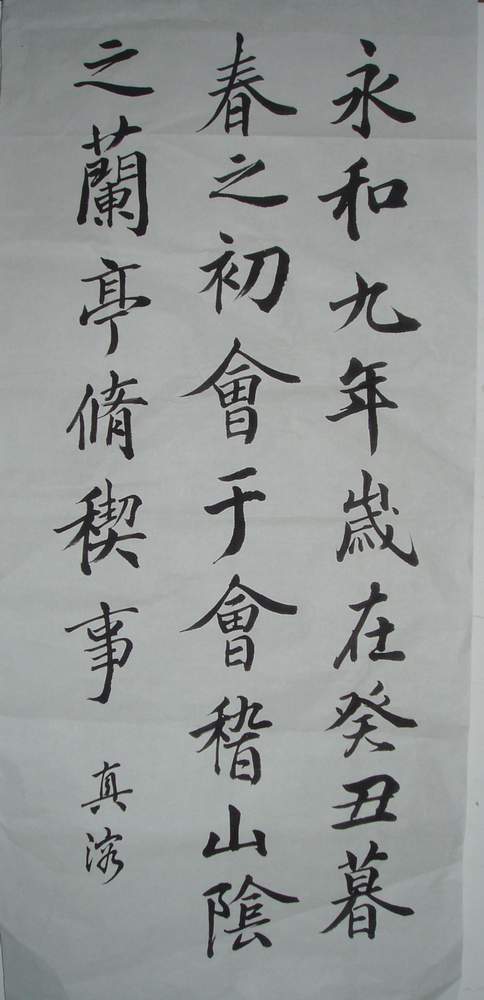 永和九年歲在癸丑暮
春之初會于會稽山陰
之蘭亭脩稧事
真溶